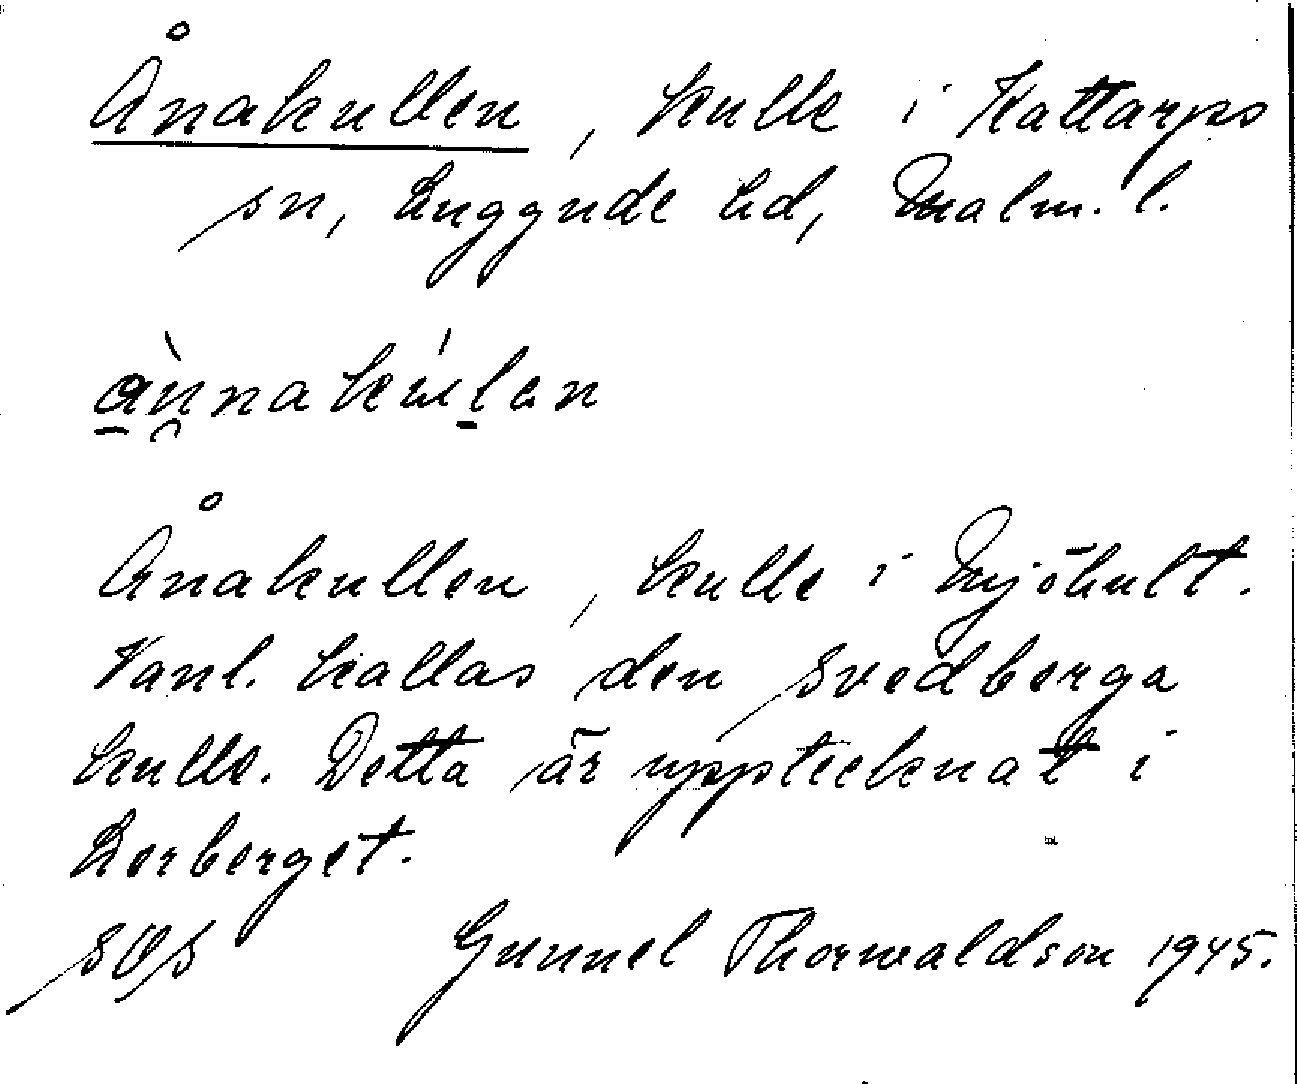 Ånakullen, kulle i Kattarps
sn, Luggude hd, Malm. l.
ànnakúlen
Ånakullen, kulle i Mjöhult.
Vanl. kallas den Svedberga
kulle. Detta är upptecknat i
Lerberget.
SOS Gunnel Thorwaldson 1945.